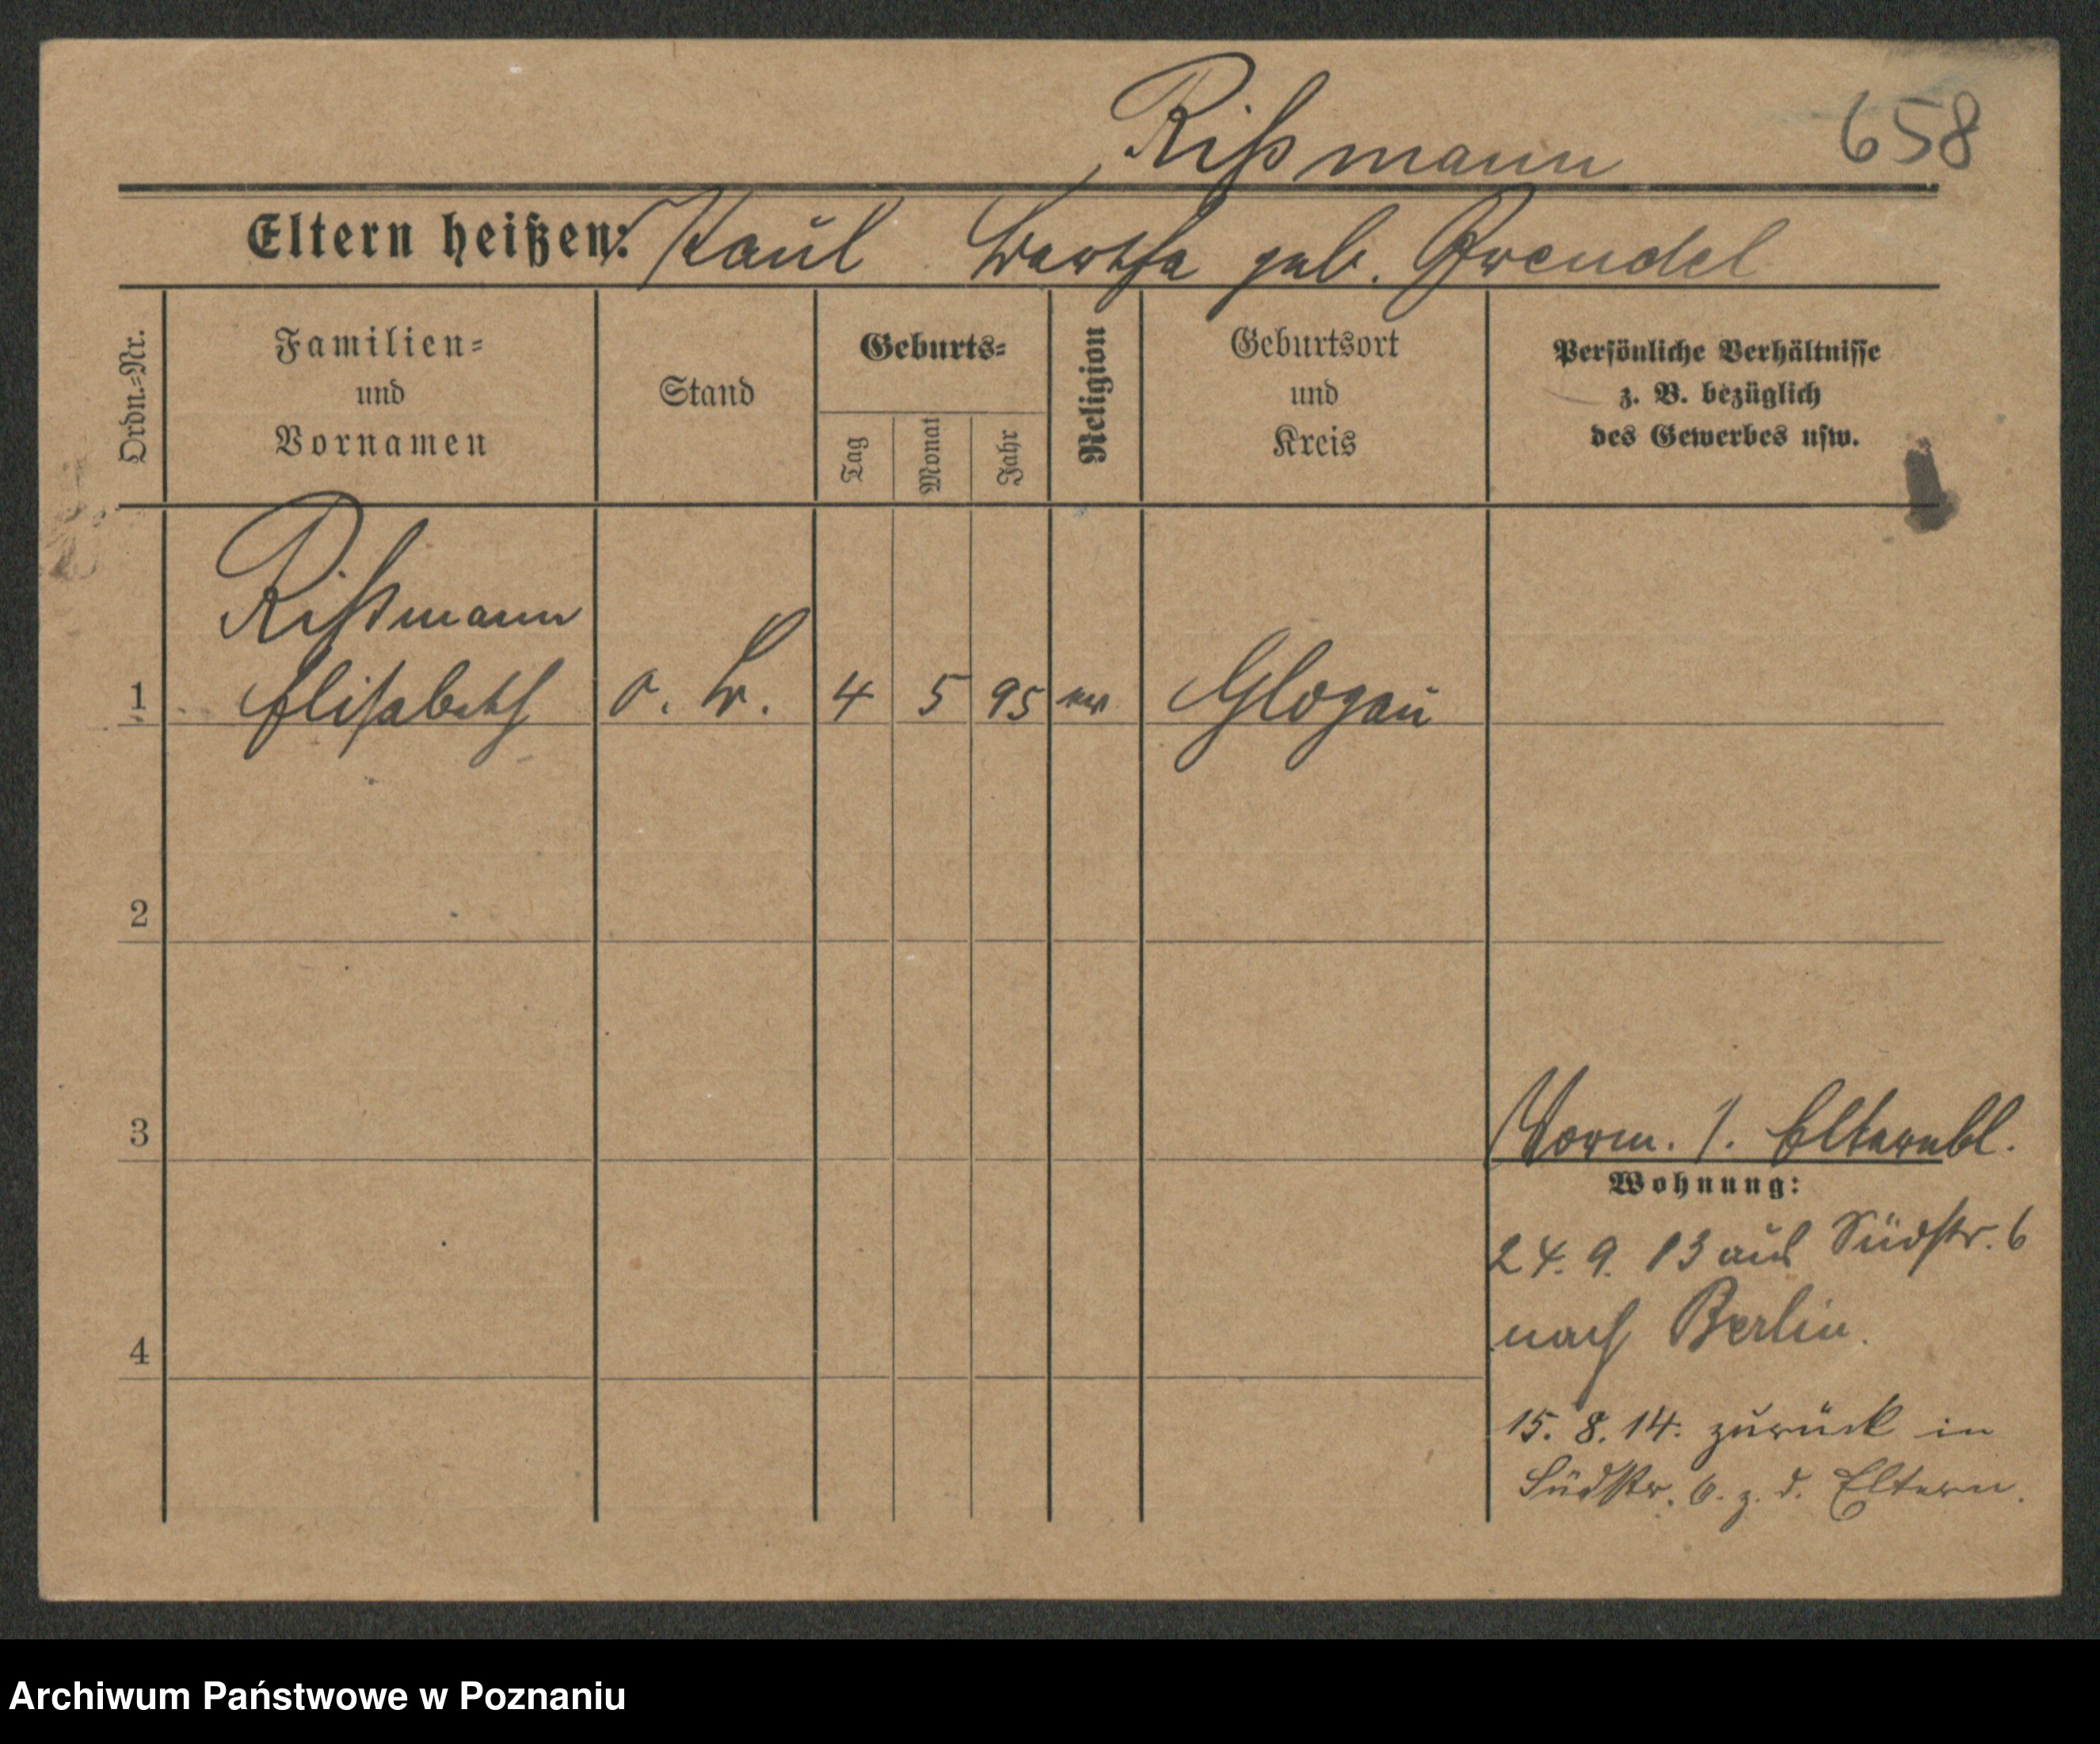 Rißmann 658
Eltern heißen: Paul Bertha geb. Grendel
Ordn.-Nr.
Familien-
und
Vornamen
Stand
Geburts-
Tag
Monat
Jahr
Religion
Geburtsort
und
Kreis
Persönliche Verhältnisse
z. B. bezüglich
des Gewerbes usw.
Rißmann
1 Elisabeth o. B. 4 5 95 ev Glogau
2
3
Vorm. s. Elternbl.
Wohnung:
24. 9. 13 aus Südstr. 6
nach Berlin.
4
15. 8. 14. zurück in
Südstr. 6. z. d. Eltern.
Archiwum Państwowe w Poznaniu